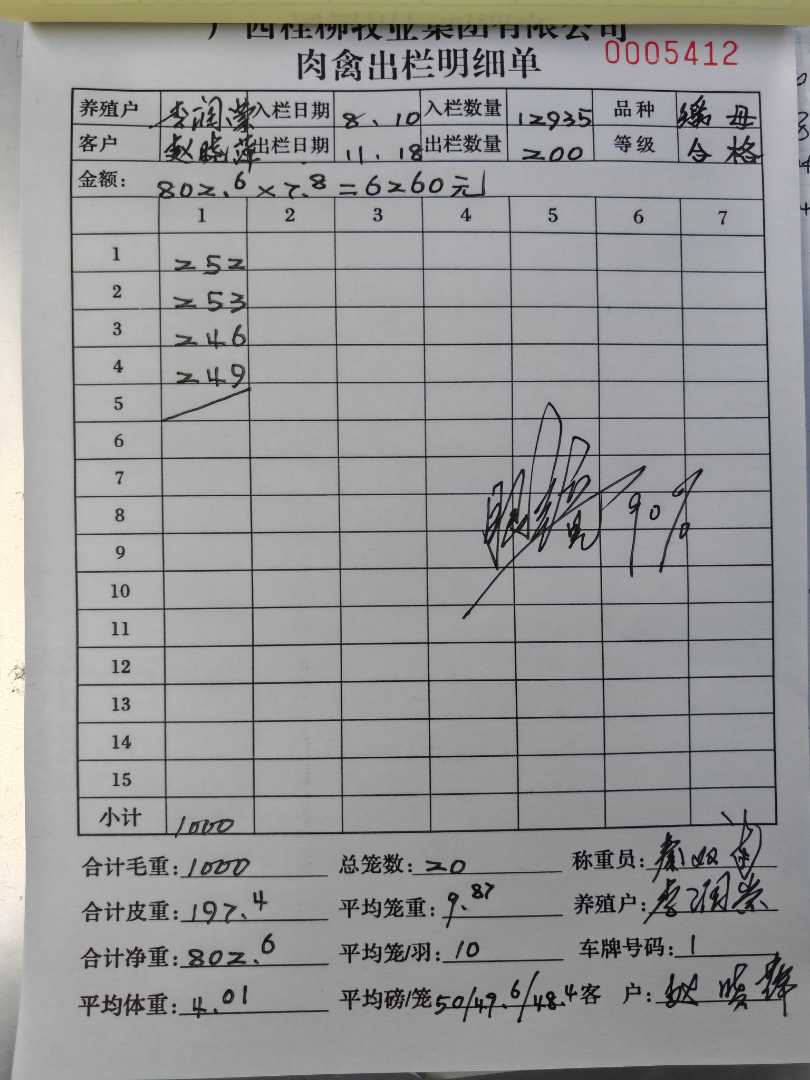 广西桂柳牧业集团有限公司
肉禽出栏明细单 0005412
养殖户 李润棠 入栏日期 8.10 入栏数量 12935 品种
客户 赵晓萍 出栏日期 11.18 出栏数量 200 等级 合格
金额: 802.6×7.8=6260元
1 2 3 4 5 6 7
1 252
2 253
3 246
4 249
5
6
7
8 90%
9
10
11
12
13
14
15
小计 1000
合计毛重: 1000 总笼数: 20 称重员:
合计皮重: 197.4 平均笼重: 9.87 养殖户: 李润棠
合计净重: 802.6 平均笼/羽: 10 车牌号码: 1
平均体重: 4.01 平均磅/笼 50/49.6/48.4 客 户: 赵晓萍